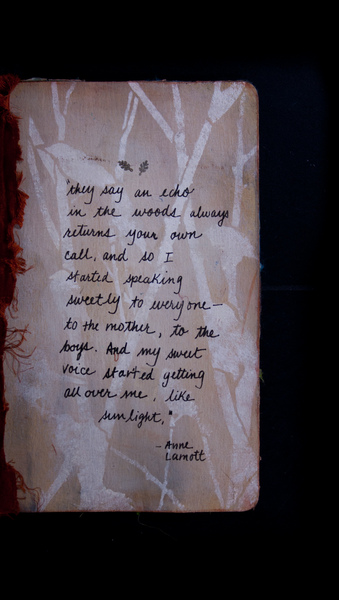 "they say an echo
in the woods always
returns your own
call, and so I
started speaking
sweetly to everyone—
to the mother, to the
boys. And my sweet
voice started getting
all over me, like
sunlight."
- Anne
Lamott